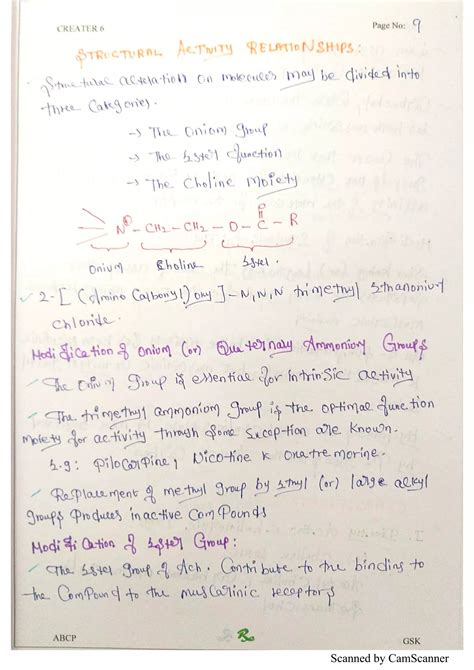 CREATER 6
Page No: 9
STRUCTURAL ACTIVITY RELATIONSHIPS:
Structural alteration on molecules may be divided into
three Categories.
→ The Onium group
→ The Ester function
→ The Choline Moiety
O
N⊕ - CH2 - CH2 - O - C - R
Onium Choline Ester.
✓ 2-[(Amino Carbonyl) oxy]-N,N,N trimethyl Ethanonium
Chloride.
Modification of Onium (or) Quaternary Ammonium Groups
✓ The Onium Group is essential for intrinsic activity
✓ The trimethyl ammonium group is the optimal function
moiety for activity through some exception are known.
E.g: Pilocarpine, Nicotine & oxatremorine.
✓ Replacement of methyl group by Ethyl (or) large alkyl
groups Produces inactive Compounds
Modification of Ester Group:
✓ The Ester group of Ach. Contribute to the binding to
the Compound to the muscarinic receptors
ABCP
Rx
GSK
Scanned by CamScanner